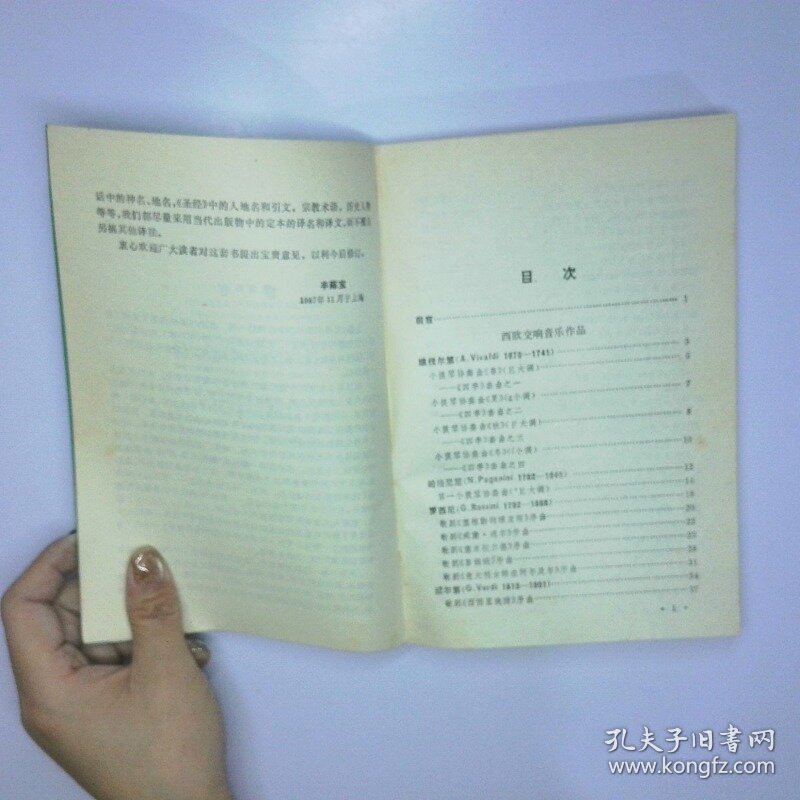 话中的神名、地名,《圣经》中的人地名和引文,宗教术语,历史人物
等等,我们都尽量采用当代出版物中的定本的译名和译文,而不
另搞其他译法。
衷心欢迎广大读者对这套书提出宝贵意见,以利今后修订。
辛丰年
1987年11月于上海
目 次
前言 1
西欧交响音乐作品
维伐尔第(A. Vivaldi 1678—1741) 3
小提琴协奏曲《春》(E大调) 5
——《四季》套曲之一
小提琴协奏曲《夏》(g小调) 6
——《四季》套曲之二
小提琴协奏曲《秋》(F大调) 8
——《四季》套曲之三
小提琴协奏曲《冬》(f小调) 10
——《四季》套曲之四
帕格尼尼(N. Paganini 1782—1840) 12
第一小提琴协奏曲(E大调) 14
罗西尼(G. Rossini 1792—1868) 18
歌剧《塞维勒的理发师》序曲 20
歌剧《威廉·退尔》序曲 22
歌剧 序曲 25
歌剧 序曲 28
歌剧《意大利女郎在阿尔及尔》序曲 31
威尔第(G. Verdi 1813—1901) 34
歌剧《西西里晚祷》序曲 37
· 1 ·
孔夫子旧书网
www.kongfz.com